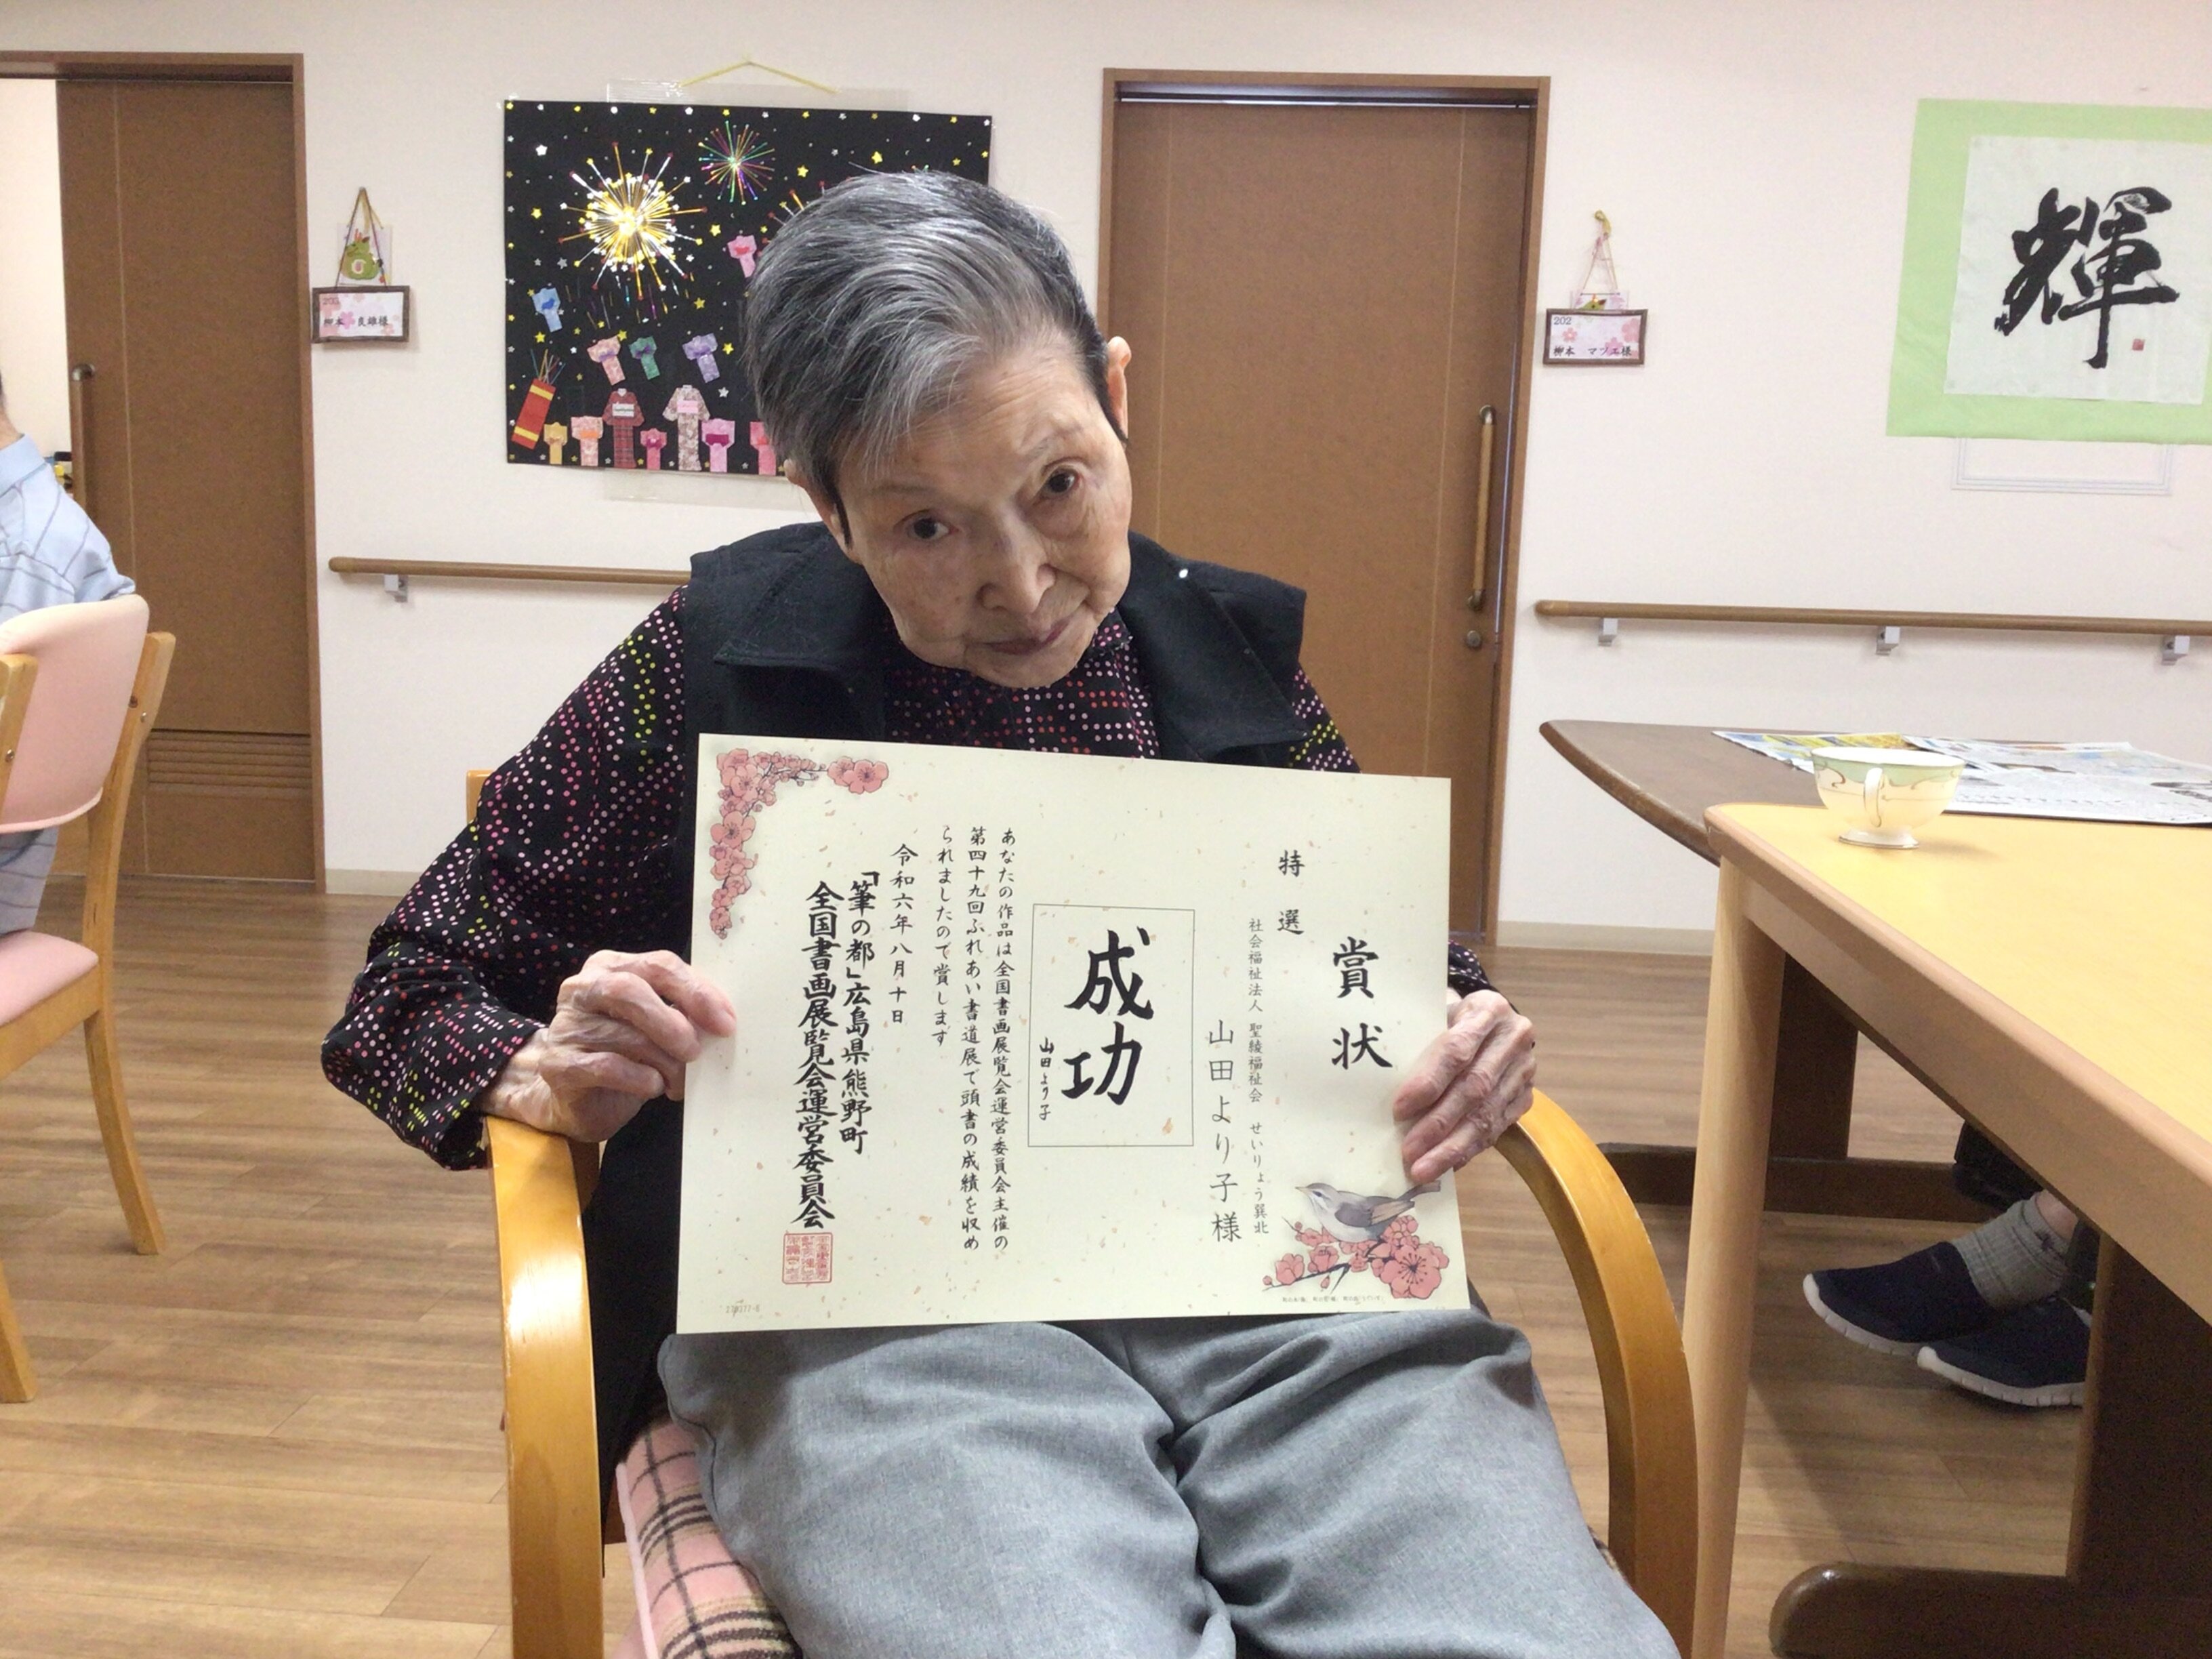 賞状
特選
社会福祉法人 聖綾福祉会 せいりょう巽北
山田より子様
成功
山田より子
あなたの作品は全国書画展覧会運営委員会主催の
第四十九回ふれあい書道展で頭書の成績を収め
られましたので賞します
令和六年八月十日
「筆の都」広島県熊野町
全国書画展覧会運営委員会
輝
柳本 良雄様
202
柳本 マツエ様